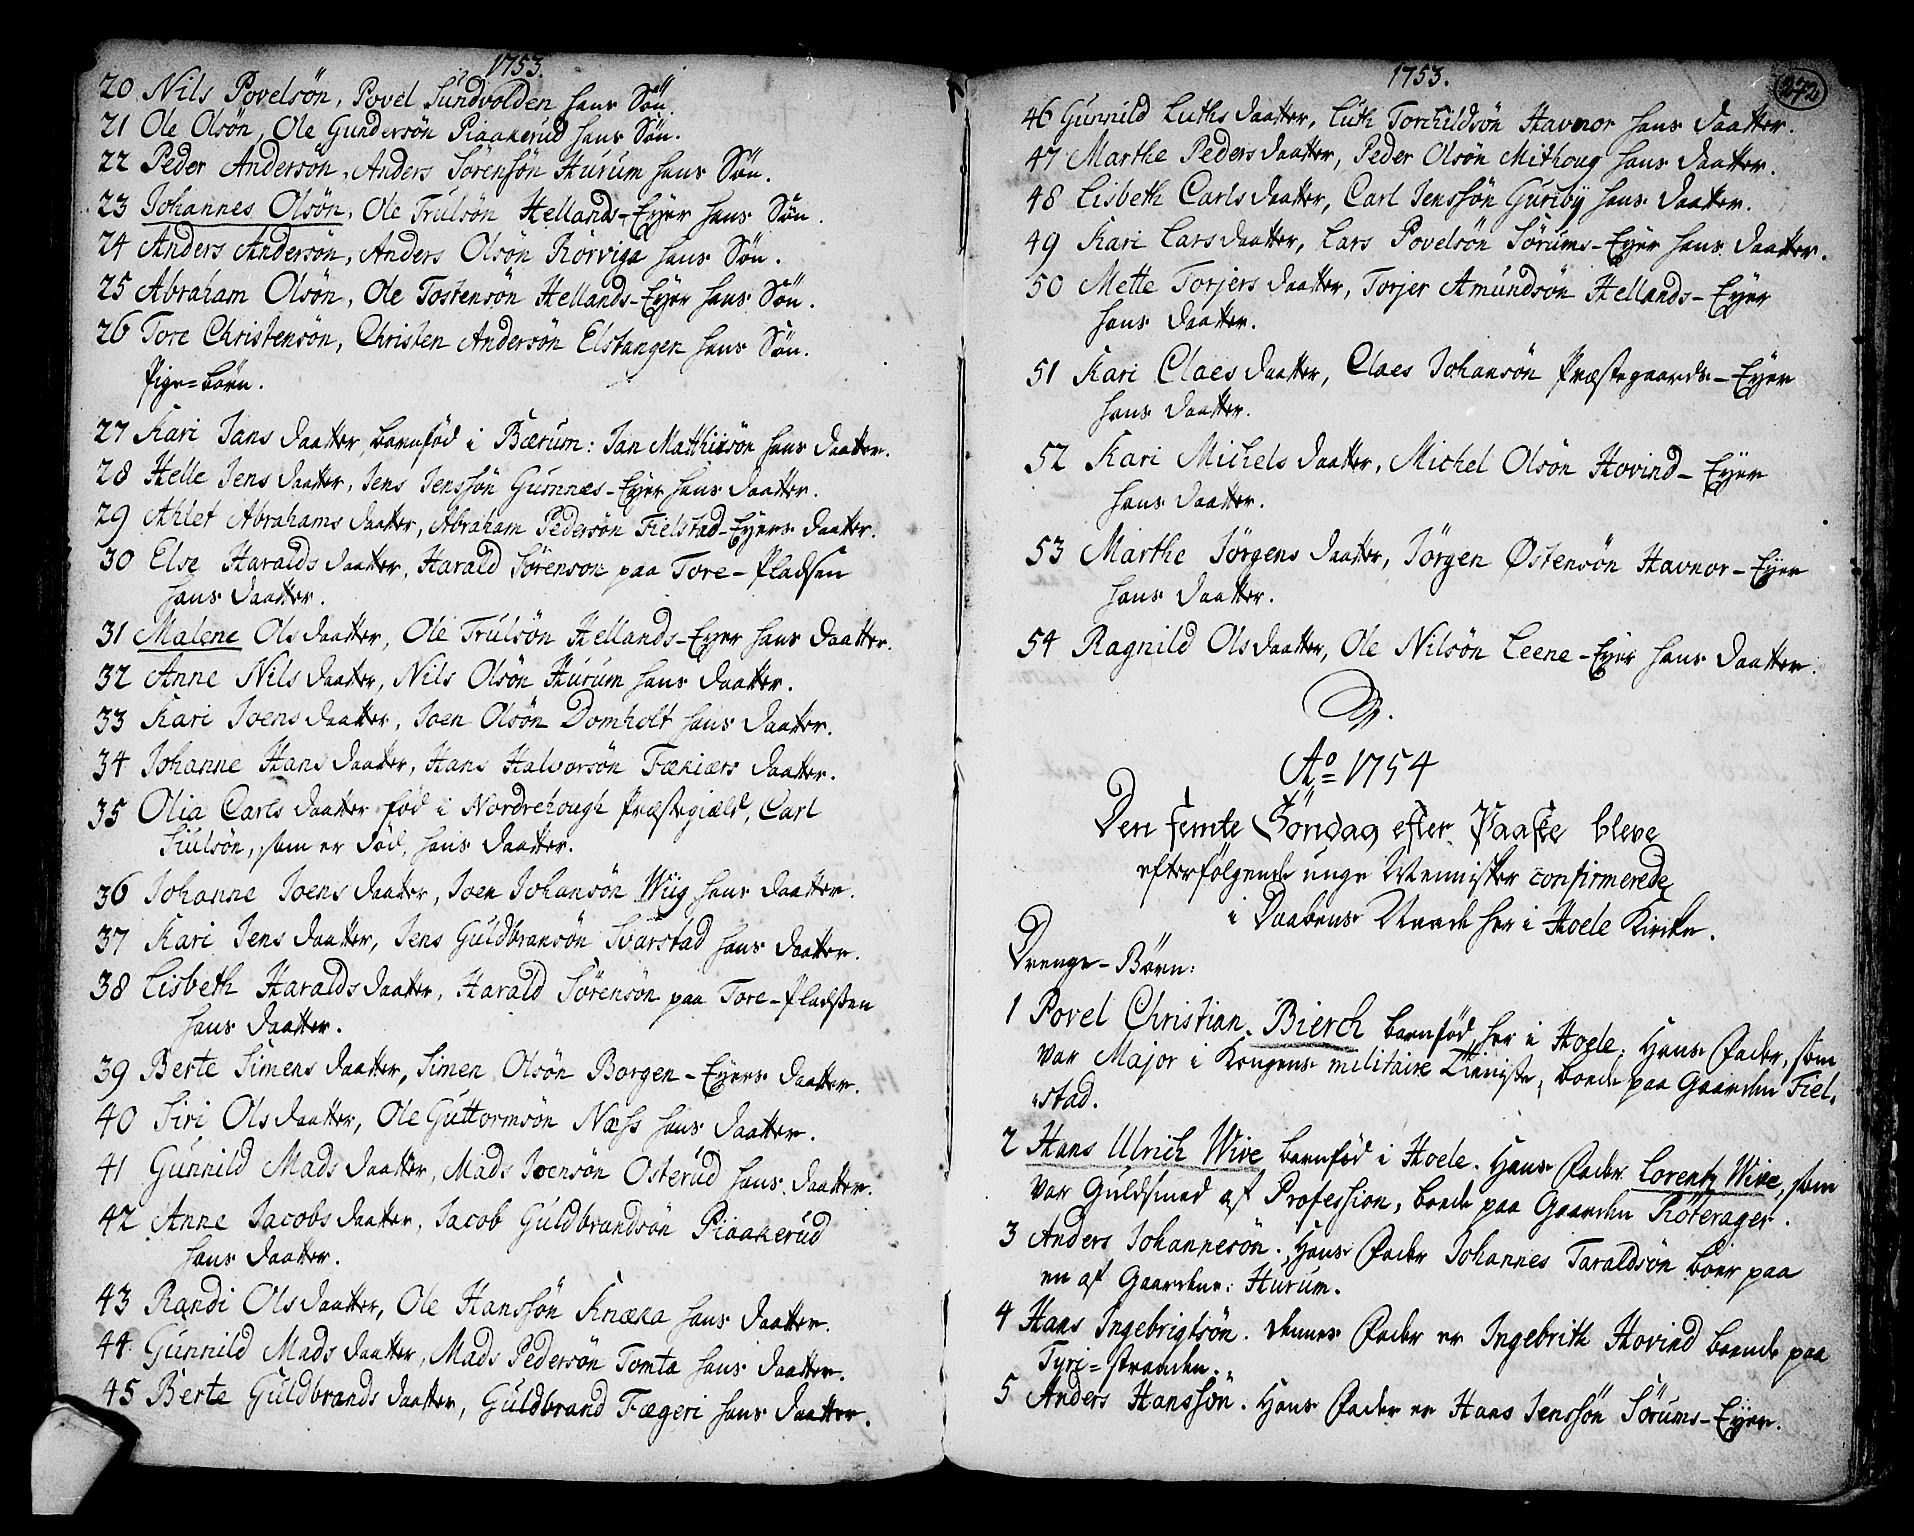 1753.
20 Nils Povelsön, Povel Sundvolden hans Sön.
21 Ole Olsön, Ole Gundersön Piaakerud hans Sön.
22 Peder Andersön, Anders Sörensön Hurum hans Sön.
23 Johannes Olsön, Ole Trulsön Hellands-Eyer hans Sön.
24 Anders Andersön, Anders Olsön Rörviga hans Sön.
25 Abraham Olsön, Ole Tostensön Hellands-Eyer hans Sön.
26 Tore Christensön, Christen Andersön Elstangen hans Sön.
Pige=börn.
27 Kari Jans daatter, barnföd i Bærum: Jan Mathiisön hans daatter.
28 Helle Jens daatter, Jens Jenssön Gumnes-Eyer hans daatter.
29 Ahlet Abrahams daatter, Abraham Pedersön Fielstad-Eyers daatter.
30 Else Haralds daatter, Harald Sörenson paa Tore-Pladsen
hans daatter.
31 Malene Ols daatter, Ole Trulsön Hellands-Eyer hans daatter.
32 Anne Nils daatter, Nils Olsön Hurum hans daatter.
33 Kari Joens daatter, Joen Olsön Domholt hans daatter.
34 Johanne Hans daatter, Hans Halvorsön Fækiærs daatter.
35 Olia Carls daatter föd i Nordrehough Præstegiæld, Carl
Siulsön, som er död, hans daatter.
36 Johanne Joens daatter, Joen Johansön Wiig hans daatter.
37 Kari Jens daatter, Jens Guldbransön Svarstad hans daatter.
38 Lisbeth Haralds daatter, Harald Sörensön paa Tore-Pladsen
hans daatter.
39 Berte Simens daatter, Simen Olsön Borgen-Eyers daatter.
40 Siri Ols daatter, Ole Guttormsön Næss hans daatter.
41 Gunnild Mads daatter, Mads Joensön Osterud hans daatter.
42 Anne Jacobs daatter, Jacob Guldbrandsön Piaakerud
hans daatter.
43 Randi Ols daatter, Ole Hanssön Knæka hans daatter.
44 Gunnild Mads daatter, Mads Pedersön Tomta hans daatter.
45 Berte Guldbrands daatter, Guldbrand Fægeri hans daatter.
1753.
272
46 Gunnild Luths daatter, Luth Torchildsön Havnor hans daatter.
47 Marthe Peders daatter, Peder Olsön Mithoug hans daatter.
48 Lisbeth Carls daatter, Carl Jenssön Guriby hans daatter.
49 Kari Lars daatter, Lars Povelsön Sörums-Eyer hans daatter.
50 Mette Torjers daatter, Torjer Amundsön Hellands-Eyer
hans daatter.
51 Kari Claes daatter, Claes Johansön Præstegaards-Eyer
hans daatter.
52 Kari Michels daatter, Michel Olsön Hovind-Eyer
hans daatter.
53 Marthe Jörgens daatter, Jörgen Östensön Havnor-Eyer
hans daatter.
54 Ragnild Ols daatter, Ole Nilsön Leene-Eyer hans daatter.
Ao 1754
Den femte Söndag efter Paaske bleve
efterfölgende unge Mennisker confirmerede
i Daabens Naade her i Hoele Kirke.
Drenge-Börn:
1 Povel Christian Bierch barnföd her i Hoele. Hans Fader, som
var Major i Kongens militaire Tieniste, boede paa Gaarden Fiel-
stad.
2 Hans Ulrich Wive barnföd i Hoele. Hans Fader Lorentz Wive, som
var Guldsmed af Profession, boede paa Gaarden Röterager.
3 Anders Johannesön. Hans Fader Johannes Taraldsön boer paa
en af Gaardene: Hurum.
4 Hans Ingebrigtsön. Dennes Fader er Ingebrith Hovind boende paa
Tyri=stranden.
5 Anders Hanssön. Hans Fader er Hans Jenssön Sörums-Eyer.